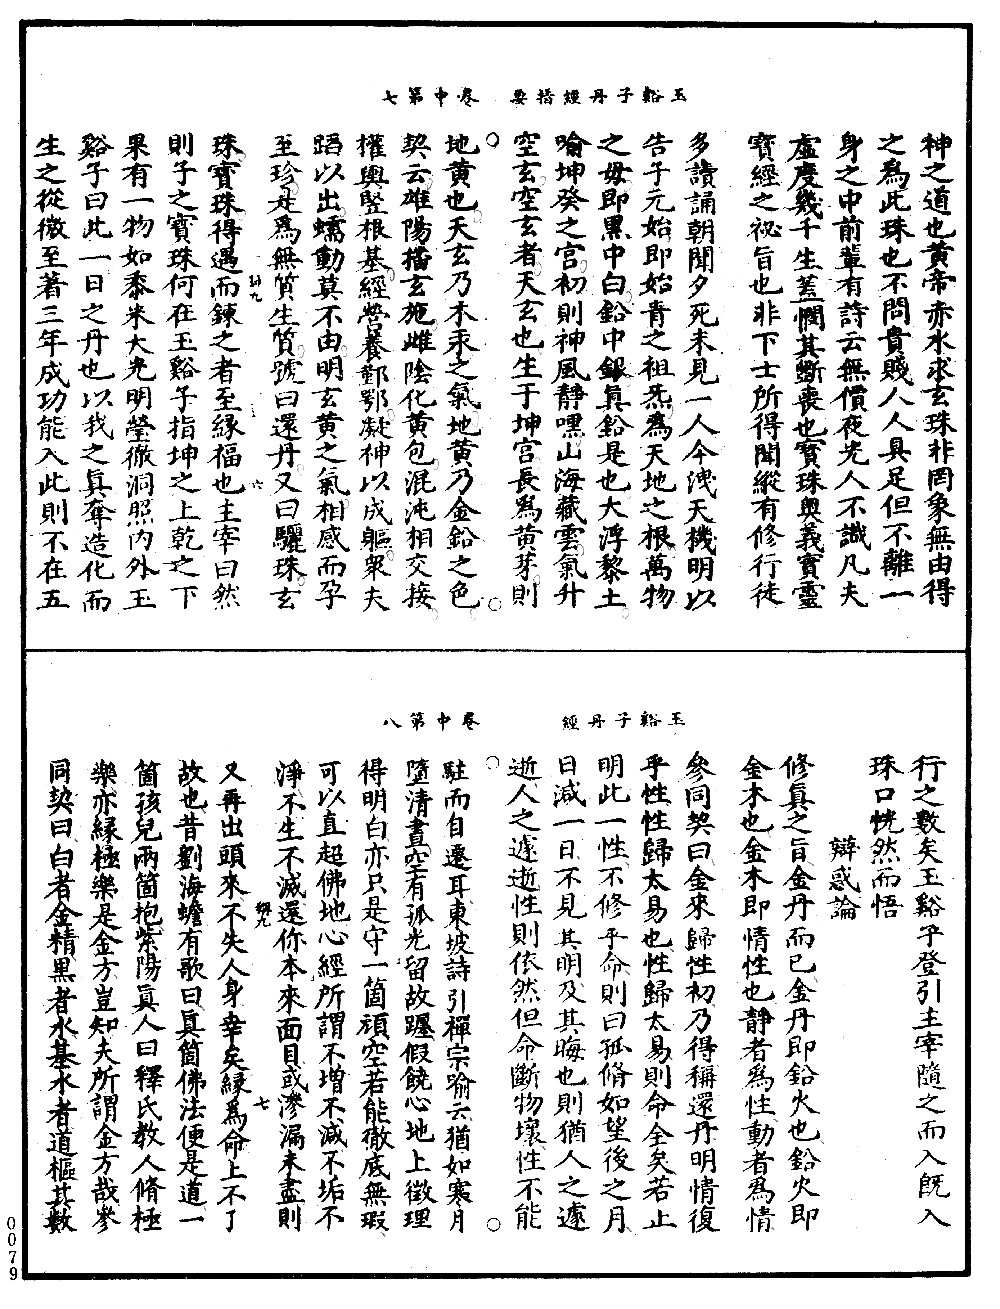 玉谿子丹經指要　卷中第七
神之道也黃帝赤水求玄珠非罔象無由得
之爲此珠也不問貴賤人人具足但不離一
身之中前輩有詩云無價夜光人不識凡夫
虛度幾千生蓋憫其斲喪也寶珠奧義寶靈
寶經之祕旨也非下士所得聞縱有修行徒
多讀誦朝聞夕死未見一人今洩天機明以
告子元始即始青之祖炁爲天地之根萬物
之毋即黒中白鉛中銀眞鉛是也大浮黎土
喻坤癸之宮初則神風靜嘿山海藏雲氣升
空玄空玄者天玄也生于坤宮長爲黃芽則
地黃也天玄乃木汞之氣地黃乃金鉛之色
契云雄陽播玄施雌陰化黃包混沌相交接
權輿豎根基經營養鄞鄂凝神以成軀衆夫
蹈以出蠕動莫不由明玄黃之氣相感而孕
至珍是爲無質生質號曰還丹又曰驪珠玄
珠寶珠得遇而鍊之者至緣福也主宰曰然
則子之寶珠何在玉谿子指坤之上乾之下
果有一物如黍米大光明瑩徹洞照內外玉
谿子曰此一日之丹也以我之眞奪造化而
生之從微至著三年成功能入此則不在五
玉谿子丹經　卷中第八
行之數矣玉谿子登引主宰隨之而入旣入
珠口恍然而悟
辯惑論
修眞之旨金丹而已金丹即鉛火也鉛火即
金木也金木即情性也靜者爲性動者爲情
參同契曰金來歸性初乃得稱還丹明情復
乎性性歸太易也性歸太易則命全矣若止
明此一性不修乎命則曰孤脩如望後之月
日減一日不見其明及其晦也則猶人之遽
逝人之遽逝性則依然但命斷物壞性不能
駐而自遷耳東坡詩引禪宗喻云猶如寒月
墮清晝空有孤光留故躔假饒心地上徵理
得明白亦只是守一箇頑空若能徹底無瑕
可以直超佛地心經所謂不增不減不垢不
淨不生不滅還你本來面目或滲漏未盡則
又再出頭來不失人身幸矣緣爲命上不了
故也昔劉海蟾有歌曰眞箇佛法便是道一
箇孩兒兩箇抱紫陽眞人曰釋氏教人脩極
樂亦緣極樂是金方豈知夫所謂金方哉參
同契曰白者金精黒者水基水者道樞其數
0079